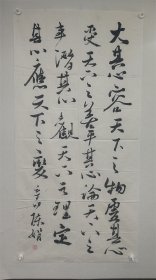 大其心容天下之物虛其心
受天下之善平其心論天下之
事潛其心觀天下之理定
其心應天下之變